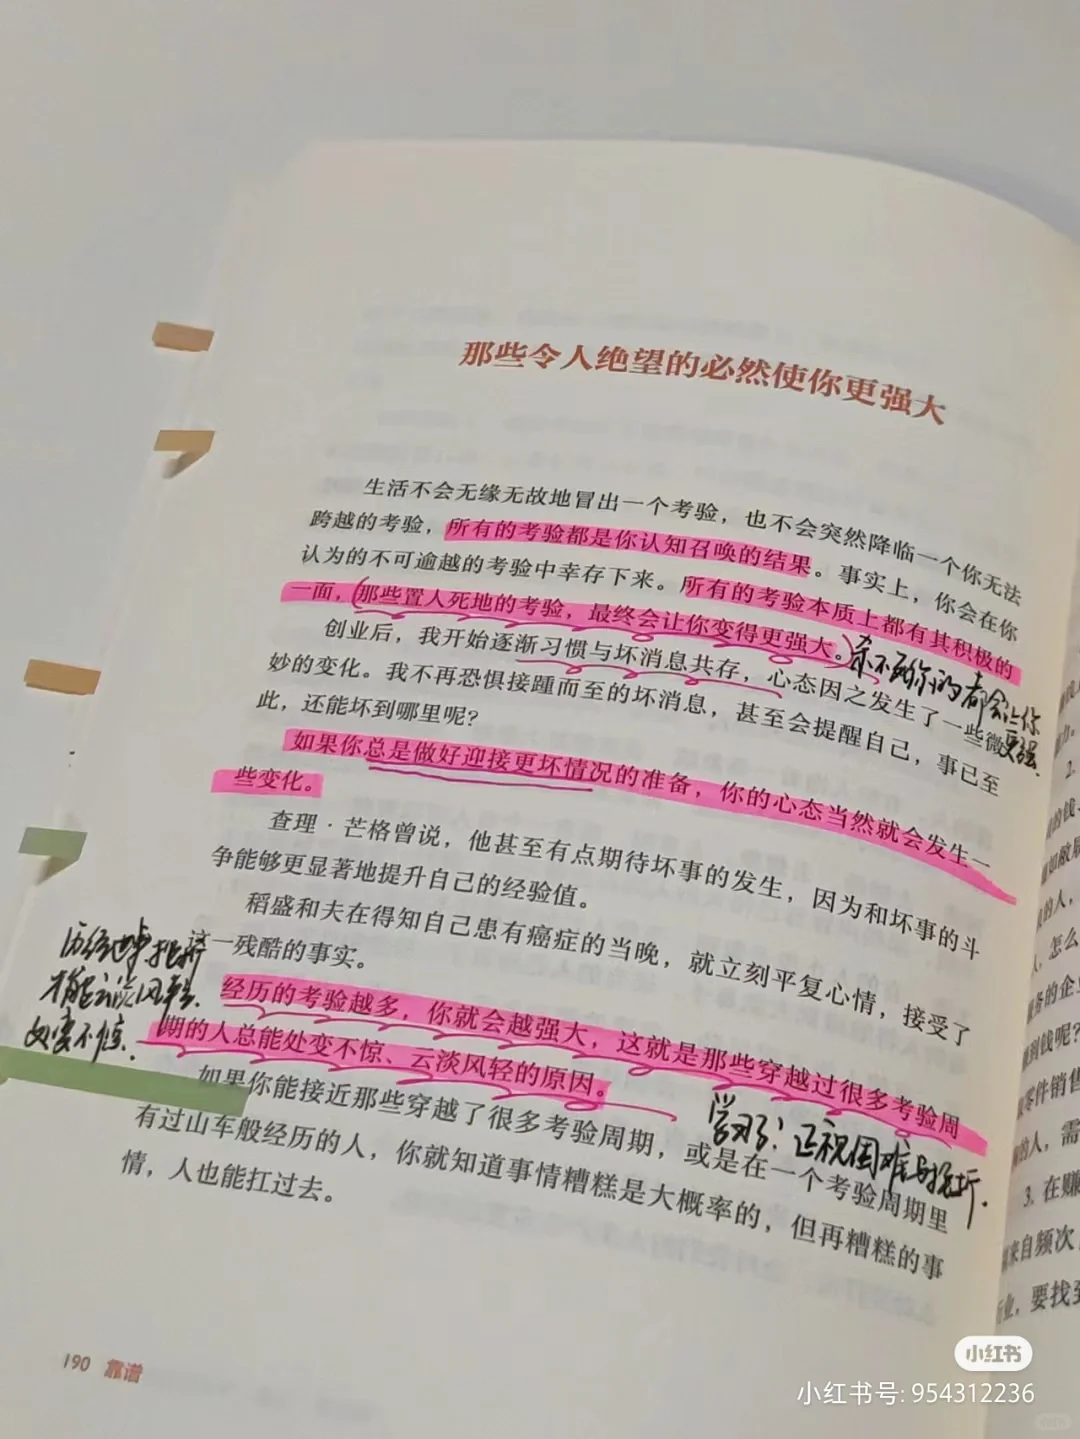 那些令人绝望的必然使你更强大
生活不会无缘无故地冒出一个考验，也不会突然降临一个你无法
跨越的考验，所有的考验都是你认知召唤的结果。事实上，你会在你
认为的不可逾越的考验中幸存下来。所有的考验本质上都有其积极的
一面，那些置人死地的考验，最终会让你变得更强大。
杀不死你的都会让你
更强
创业后，我开始逐渐习惯与坏消息共存，心态因之发生了一些微
妙的变化。我不再恐惧接踵而至的坏消息，甚至会提醒自己，事已至
此，还能坏到哪里呢？
如果你总是做好迎接更坏情况的准备，你的心态当然就会发生一
些变化。
查理·芒格曾说，他甚至有点期待坏事的发生，因为和坏事的斗
争能够更显著地提升自己的经验值。
稻盛和夫在得知自己患有癌症的当晚，就立刻平复心情，接受了
这一残酷的事实。
历经
才能云淡风轻、
处变不惊.
经历的考验越多，你就会越强大，这就是那些穿越过很多考验周
期的人总能处变不惊、云淡风轻的原因。
学习了：正视困难与挫折.
如果你能接近那些穿越了很多考验周期，或是在一个考验周期里
有过山车般经历的人，你就知道事情糟糕是大概率的，但再糟糕的事
情，人也能扛过去。
190 靠谱
2.
的人，
怎么
服务的企业
到钱呢？
零件销售
的人，需
3. 在赚
来自频次
行业，要找到
小红书
小红书号: 954312236